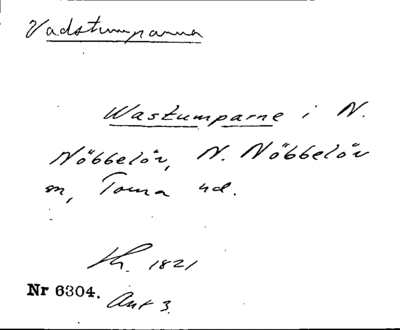 Vadstumparna
Wastumparne i N.
Nöbbelöv, N. Nöbbelöv
sn, Torna hd.
Lh. 1821
Nr 6304. Akt 3.